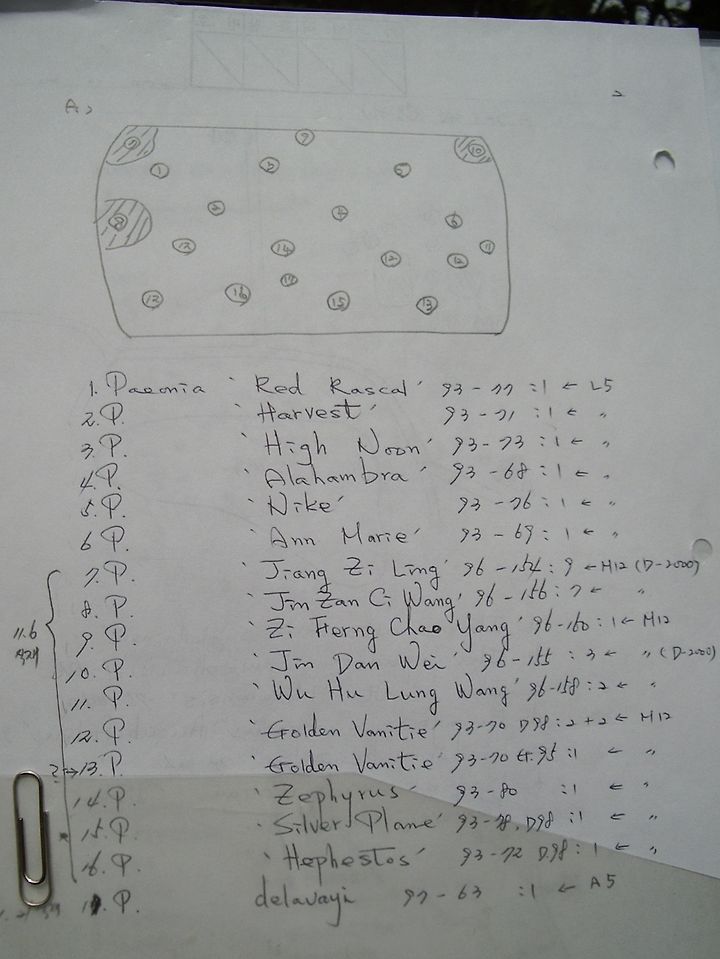 A,
9 7 10
1 3 5
8 2 4 6
12 14 12 12 11
17
12 16 15 13
1. Paeonia 'Red Rascal' 93-77 :1 ← L5
2. P. 'Harvest' 93-71 :1 ← 〃
3. P. 'High Noon' 93-73 :1 ← 〃
4. P. 'Alahambra' 93-68 :1 ← 〃
5. P. 'Nike' 93-76 :1 ← 〃
6 P. 'Ann Marie' 93-69 :1 ← 〃
7. P. 'Jiang Zi Ling' 96-154 : 9 ← M12 (D-2000)
8. P. 'Jin Zan Ci Wang' 96-156 : 7 ← 〃
9. P. 'Zi Herng Chao Yang' 96-160 : 1 ← M12
11.6
10. P. 'Jin Dan Wei' 96-155 : 3 ← 〃 (D-2000)
11. P. 'Wu Hu Lung Wang' 96-158 : 2 ← 〃
12. P. 'Golden Vanitie' 93-70 D98 : 2+2 ← M12
?→13. P. 'Golden Vanitie' 93-70 Gr.95 :1 ← 〃
14. P. 'Zephyrus' 93-80 :1 ← 〃
15. P. 'Silver Plane' 93-78. D98 :1 ← 〃
16. P. 'Hephestos' 93-72 D98 : 1 ← 〃
17. P. delavayi 97-63 :1 ← A5